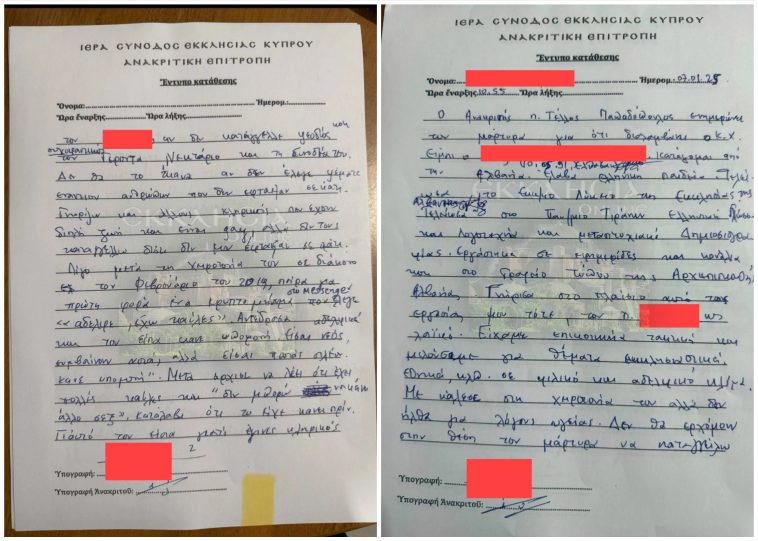 ΙΕΡΑ ΣΥΝΟΔΟΣ ΕΚΚΛΗΣΙΑΣ ΚΥΠΡΟΥ
ΑΝΑΚΡΙΤΙΚΗ ΕΠΙΤΡΟΠΗ
Έντυπο κατάθεσης
Όνομα: Ημερομ.:
Ώρα έναρξης: Ώρα λήξης:
τον αν δεν κατάγγελλε ψευδώς και
συκοφαντικώς
τον Γέροντα Νεκτάριο και τη συνοδεία του.
Δεν θα το έκανα αν δεν έλεγε ψέματα
εναντίον ανθρώπων που δεν έφταιξαν σε κάτι.
Γνωρίζω και άλλους κληρικούς που έχουν
διπλή ζωή και είναι gay, αλλά δεν τους
καταγγέλλω διότι δεν μου έφταιξαν σε κάτι.
Λίγο μετά τη χειροτονία του σε διάκονο
τον Φεβρουάριο του 2019, πήρα για
πρώτη φορά ένα μήνυμα στο Messenger που έλεγε
«αδελφέ, έχω καύλες». Αντέδρασα αδελφικά
και του είπα κάνε υπομονή είσαι νέος,
συμβαίνουν αυτά, αλλά είσαι παπάς πλέον.
κάνε υπομονή". Μετά άρχισε να λέει ότι έχει
πολλές καύλες και "δεν μπορώ να κάνω
άλλο σεξ», κατάλαβα ότι το είχε κάνει πριν.
Γι'αυτό του είπα γιατί έγινες κληρικός
Υπογραφή: 2
Υπογραφή Ανακριτού:
ΙΕΡΑ ΣΥΝΟΔΟΣ ΕΚΚΛΗΣΙΑΣ ΚΥΠΡΟΥ
ΑΝΑΚΡΙΤΙΚΗ ΕΠΙΤΡΟΠΗ
Έντυπο κατάθεσης
Όνομα: Ημερομ.: 07.01.25
Ώρα έναρξης: 10.55 Ώρα λήξης:
Ο Ανακριτής π. Παπαδόπουλος ενημερώνει
τον μάρτυρα για ότι διαλαμβάνει ο Κ.Χ.
Είμαι ο κατάγομαι από
την Αλβανία. Έλαβα ελληνική παιδεία.
το Εκκλ. Λύκειο της Εκκλησίας της
Αλβανίας στο Παν/μιο Τιράνων Ελληνική Γλώσσα
και Λογοτεχνία και μεταπτυχιακό Δημοσιογρα
φίας. Εργάστηκα σε εφημερίδες και κανάλια
και στο Γραφείο Τύπου της Αρχιεπισκοπής
Αλβανίας. Γνώρισα στο πλαίσιο αυτό της
εργασίας μου τότε, τον π. ως
λαϊκό. Είχαμε επικοινωνία τακτικά και
μιλούσαμε για θέματα εκκλησιαστικά,
εθνικά, κλπ. σε φιλικό και αδελφικό κλίμα.
Με κάλεσε στη χειροτονία του αλλά δεν
ήλθα για λόγους υγείας. Δεν θα ερχόμουν
στην θέση του μάρτυρα να καταγγείλω
Υπογραφή:
Υπογραφή Ανακριτού: